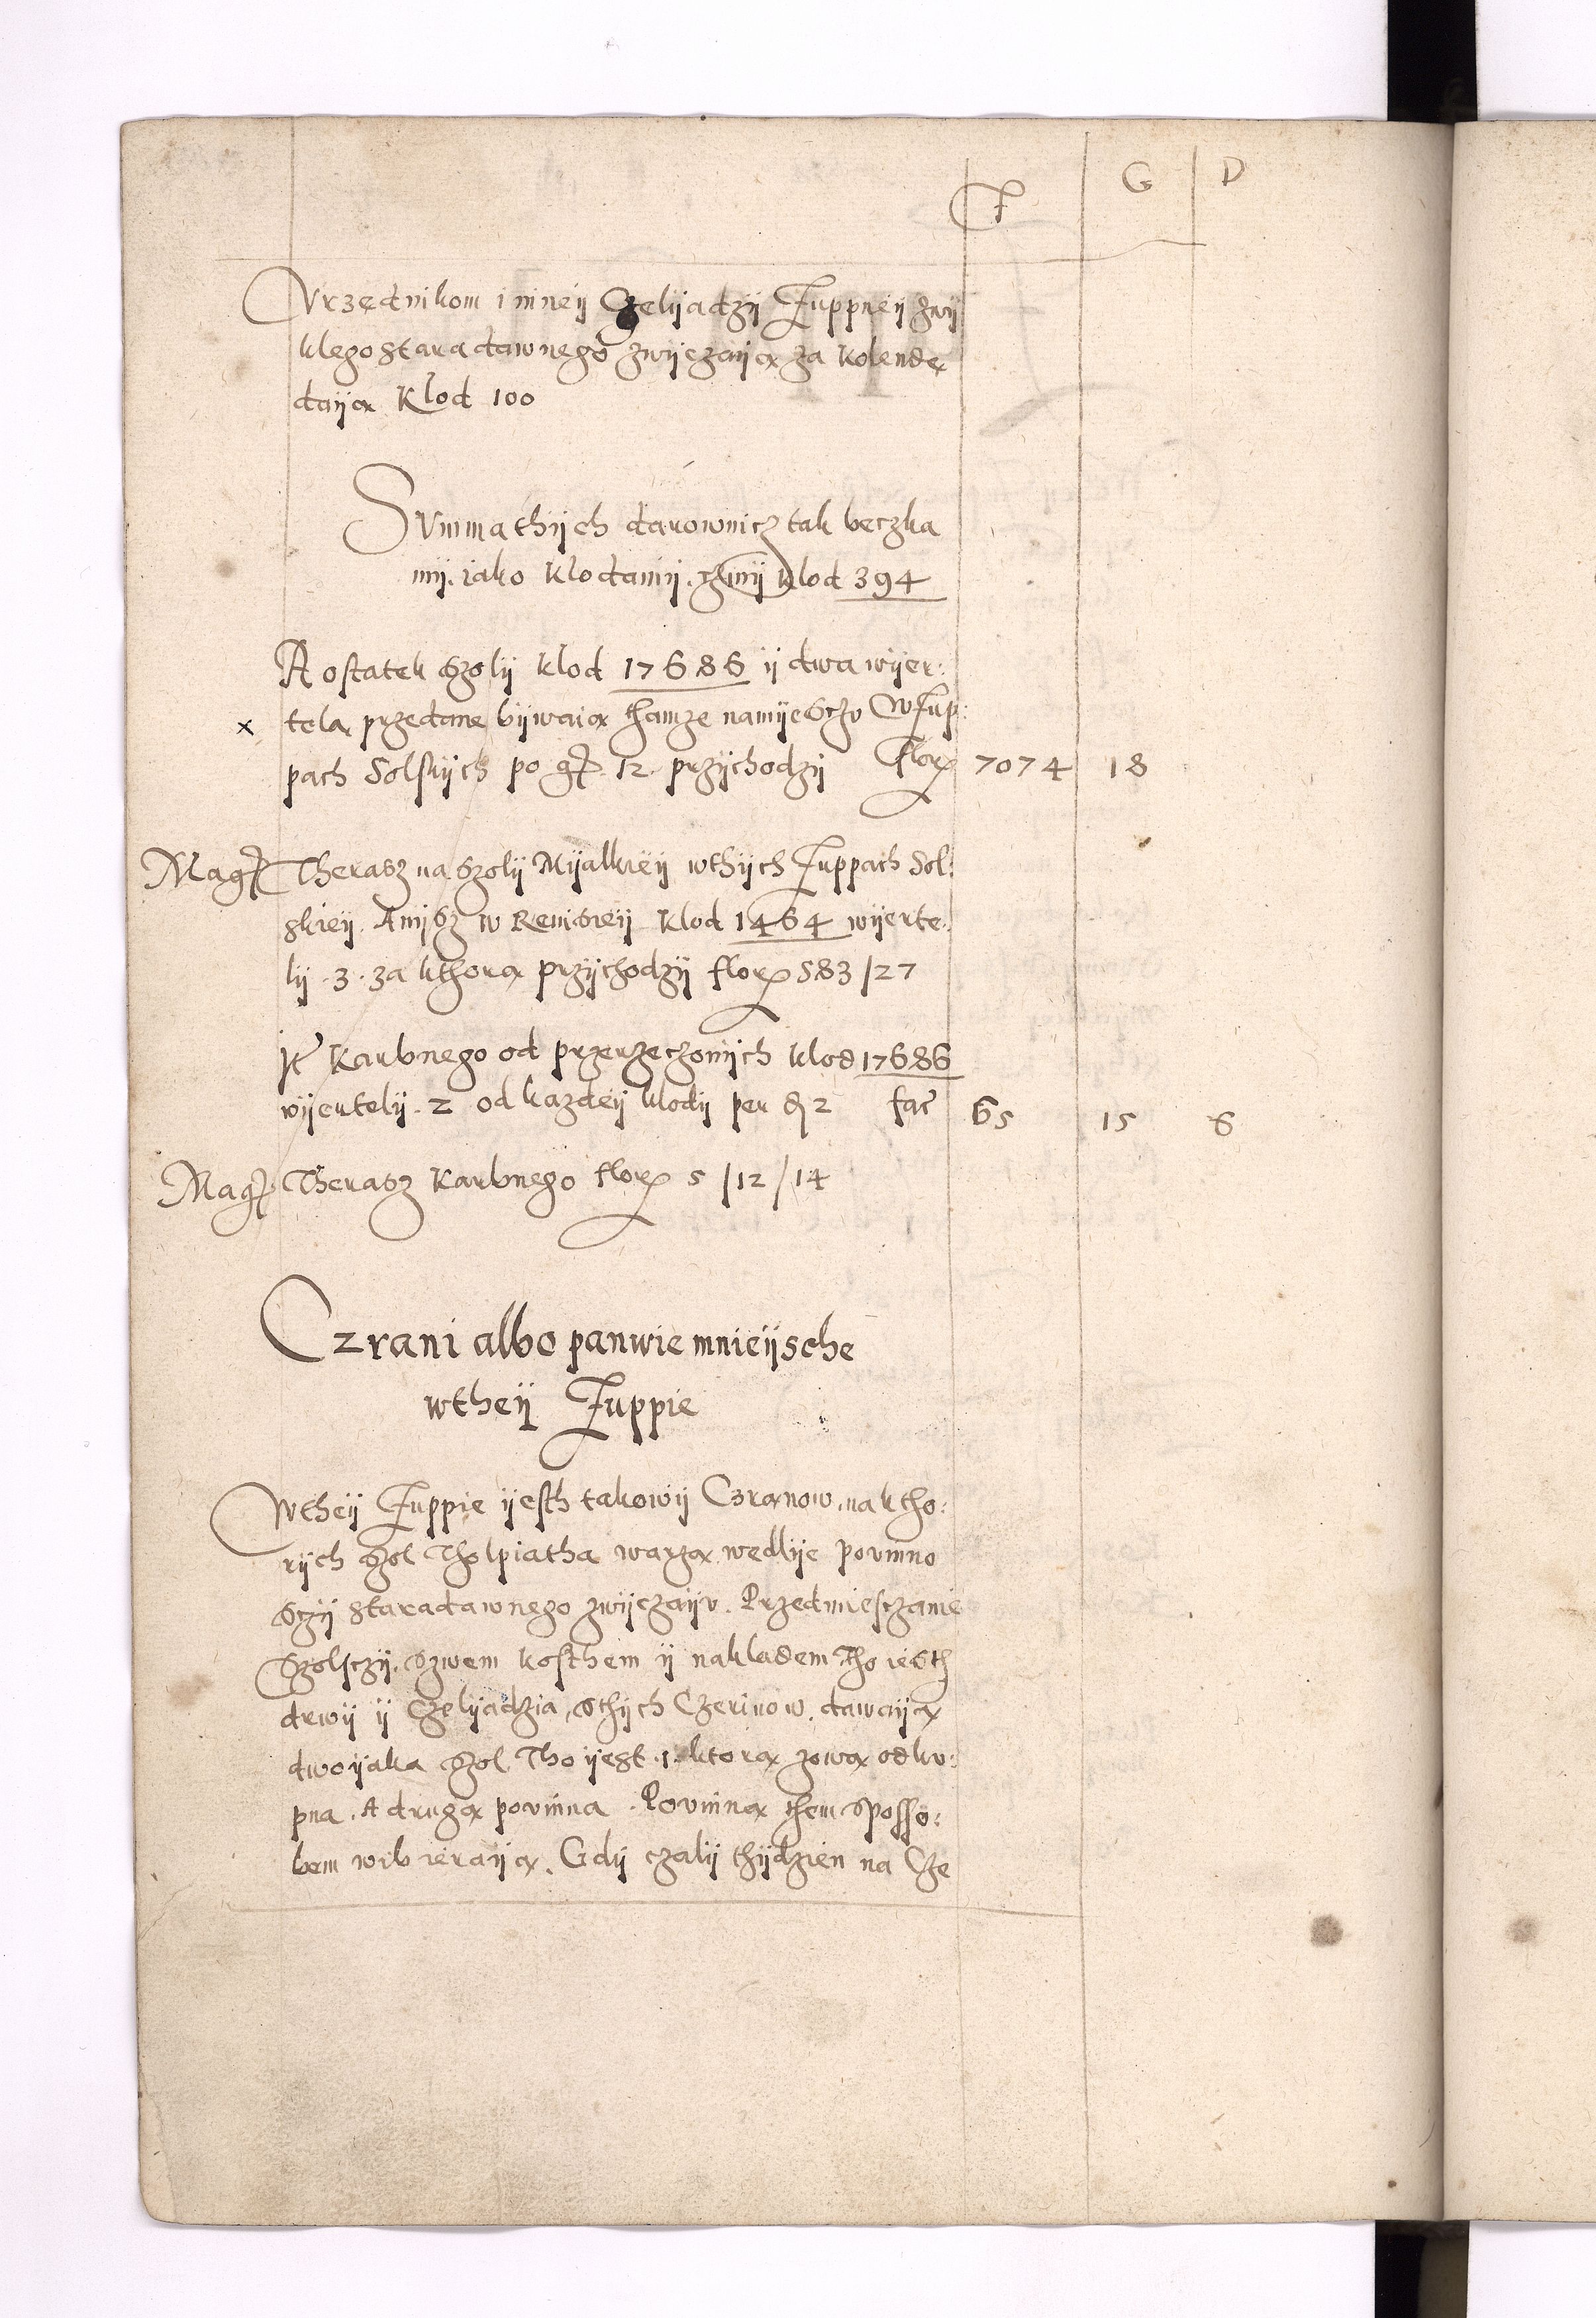 F G D
Vrzędnikom i inneij Czelijadzij Zuppneij zwij
klego staradawnego zwijczaija za kolendę
daija Klod 100
Summa thijch darownicz tak beczka
mij. iako Klodamij. czijnij klod 394
A ostatek szolij klod 17686 ij dwa wijer:
x tela, przedane bijwaia thamze namijesczv w Zup:
pach Solskijch po g 12 przijchodzij flor 7074 18
Mag Therasz na szolij Mijalkieij wthijch Zuppach Sol:
skieij. A mijsz w Remisieij klod 1464 wijerte:
lij .3. za kthora przijchodzij flor 583/27
Jt Karbnego od przerzeczonijch klod 17686
wijertelij .2 od kazdeij klodij per d 2 fac 65 15 6
Mag Therasz Karbnego flor 5/12/14
Czrani albo panwie mnieijsche
wtheij Zuppie
Wtheij Zuppie ijesth takowij Czranow, na ktho:
rijch szol Tholpiatha warza. wedlije povinno
sczij staradawnego zwijczaijv. Przedmiesczanie
Szolsczij. szwem kosthem ij nakladem tho iesth
drwij ij Czelijadzia, sthijch Czerinow. dawaija
dwoijaka szol Tho ijest .1. ktora zowa odkv:
pna. A druga povinna. Povinna them sposso:
bem wibieraija. Gdij czalij thijdzien na Cze